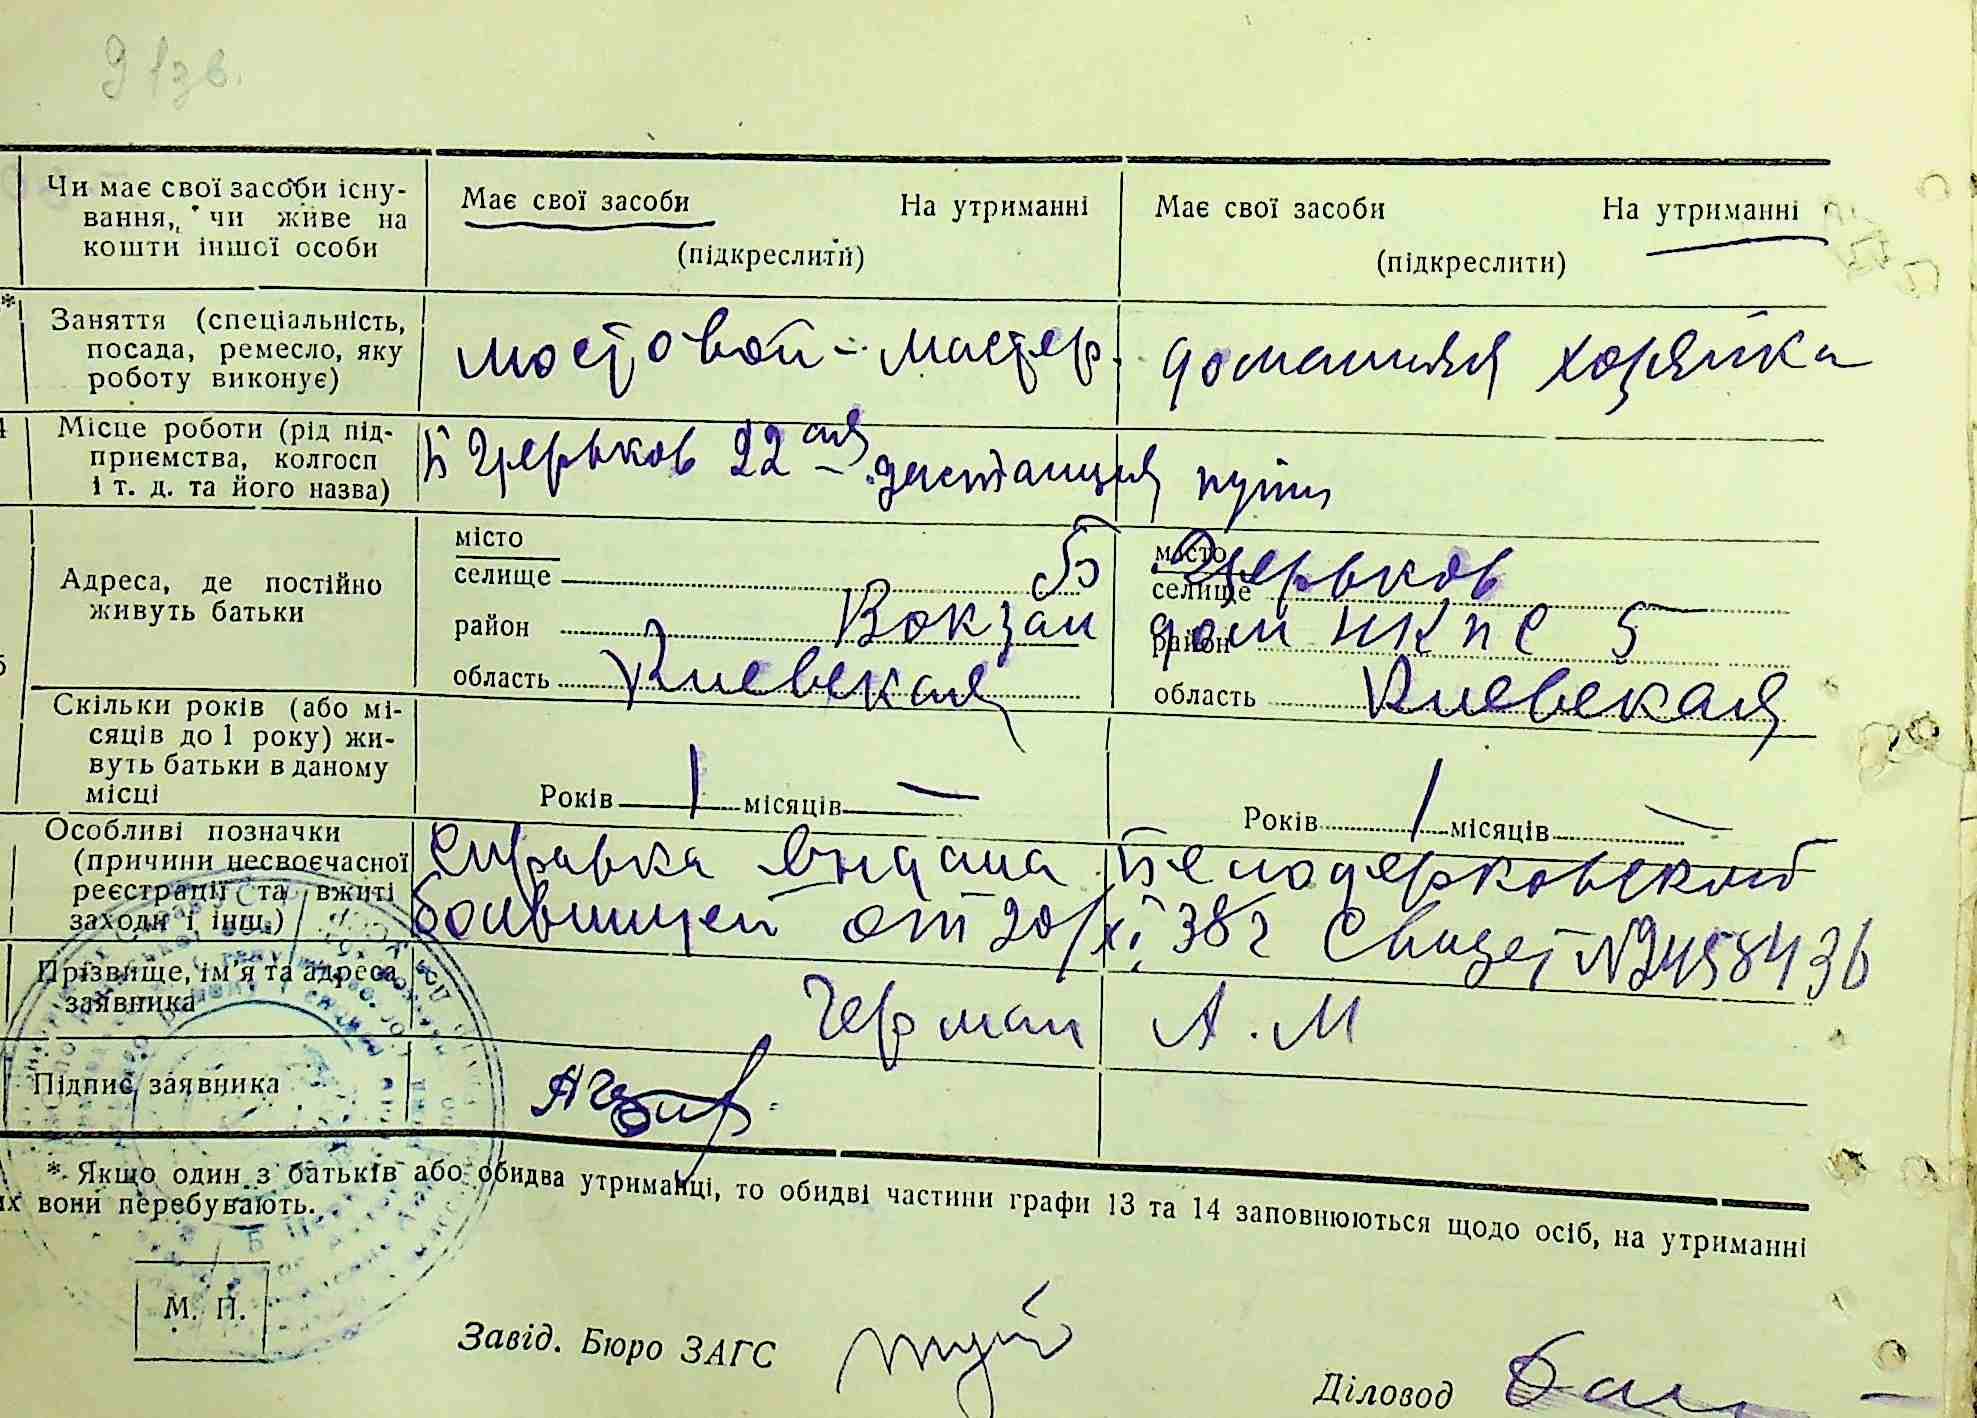 9 1зв.
Чи має свої засоби існу-
вання, чи живе на
кошти іншої особи
Має свої засоби На утриманні
(підкреслити)
Має свої засоби На утриманні
(підкреслити)
*
Заняття (спеціальність,
посада, ремесло, яку
роботу виконує)
мостовой - мастер
домашняя хозяйка
Місце роботи (рід під-
приємства, колгосп
і т. д. та його назва)
Б Церьков 22 ая дистанция пути
Адреса, де постійно
живуть батьки
місто
селище Б Церьков
район Вокзал дом НКПС 5
область Киевская
місто
селище
район
область Киевская
Скільки років (або мі-
сяців до 1 року) жи-
вуть батьки в даному
місці
Років 1 місяців —
Років 1 місяців —
Особливі позначки
(причини несвоєчасної
реєстрації та вжиті
заходи і інш.)
Справка выдана Белоцерковской
больницей от 20/XI 38 г Свидет №2458436
Прізвище, ім'я та адреса
заявника
Герман А. М
Підпис заявника
* Якщо один з батьків або обидва утриманці, то обидві частини графи 13 та 14 заповнюються щодо осіб, на утриманні
их вони перебувають.
М. П.
Завід. Бюро ЗАГС
Діловод